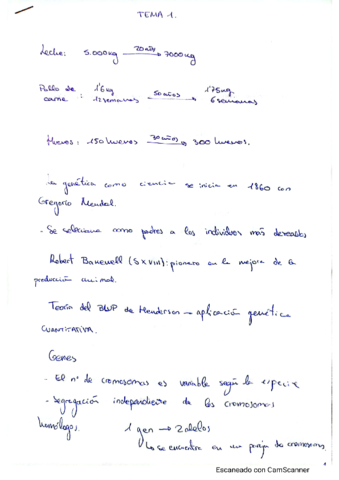 TEMA 1.
Leche: 5.000kg 20 años 7000kg
Pollo de carne : 1'6kg 12 semanas 50 años 1'75kg 6 semanas
Huevos : 150 huevos 30 años 300 huevos.
La genética como ciencia se inicia en 1860 con
Gregorio Mendel.
- Se selecciona como padres a los individuos más deseables
Robert Bakewell (S XVIII): pionero en la mejora de la
producción animal.
Teoría del BLUP de Henderson → aplicación genética
CUANTITATIVA.
Genes
- El nº de cromosomas es variable según la especie
- segregación independiente de los cromosomas
homólogos.
1 gen → 2 alelos
↳ se encuentra en un pareja de cromosomas
Escaneado con CamScanner